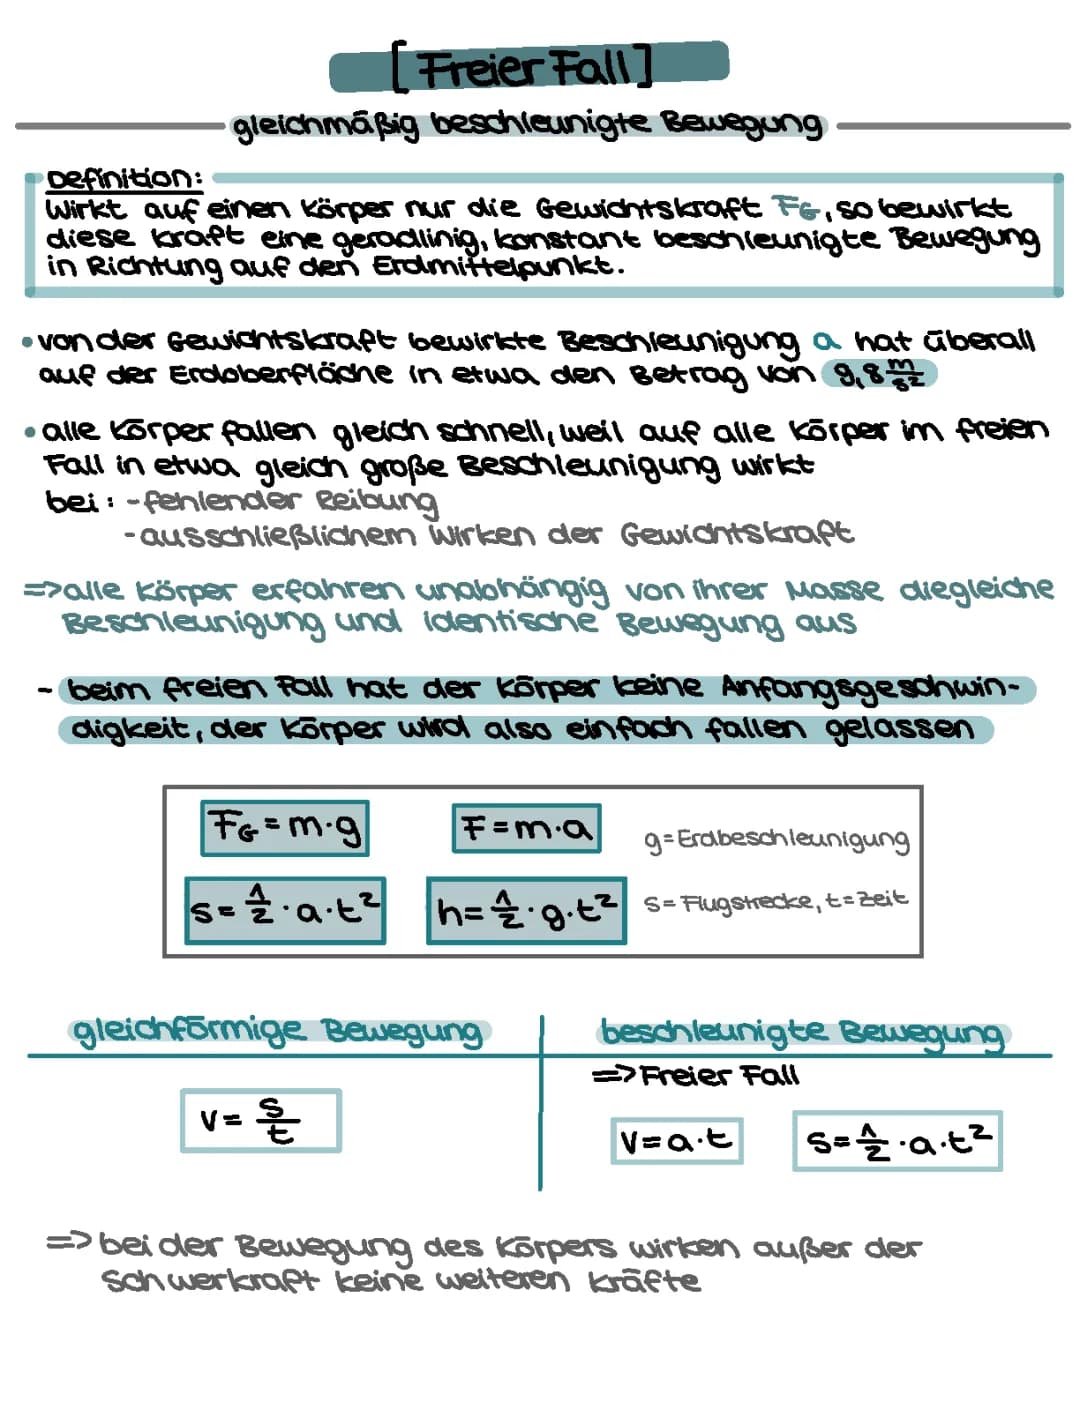 [Freier Fall]
gleichmäßig beschleunigte Bewegung
Definition:
Wirkt auf einen Körper nur die Gewichtskraft FG, so bewirkt
diese Kraft eine geradlinig, konstant beschleunigte Bewegung
in Richtung auf den Erdmittelpunkt.
• von der Gewichtskraft bewirkte Beschleunigung a hat überall
auf der Erdoberfläche in etwa den Betrag von 9,8 m/s²
• alle Körper fallen gleich schnell, weil auf alle Körper im freien
Fall in etwa gleich große Beschleunigung wirkt
bei: - fehlender Reibung
- ausschließlichem Wirken der Gewichtskraft
=> alle Körper erfahren unabhängig von ihrer Masse diegleiche
Beschleunigung und identische Bewegung aus
- beim freien Fall hat der Körper keine Anfangsgeschwin-
digkeit, der Körper wird also einfach fallen gelassen
FG = m·g F = m·a g = Erdbeschleunigung
s = 1/2 · a · t² h = 1/2 · g · t² s = Flugstrecke, t = Zeit
gleichförmige Bewegung beschleunigte Bewegung
=> Freier Fall
v = s/t v = a·t s = 1/2 · a · t²
=> bei der Bewegung des Körpers wirken außer der
Schwerkraft keine weiteren Kräfte